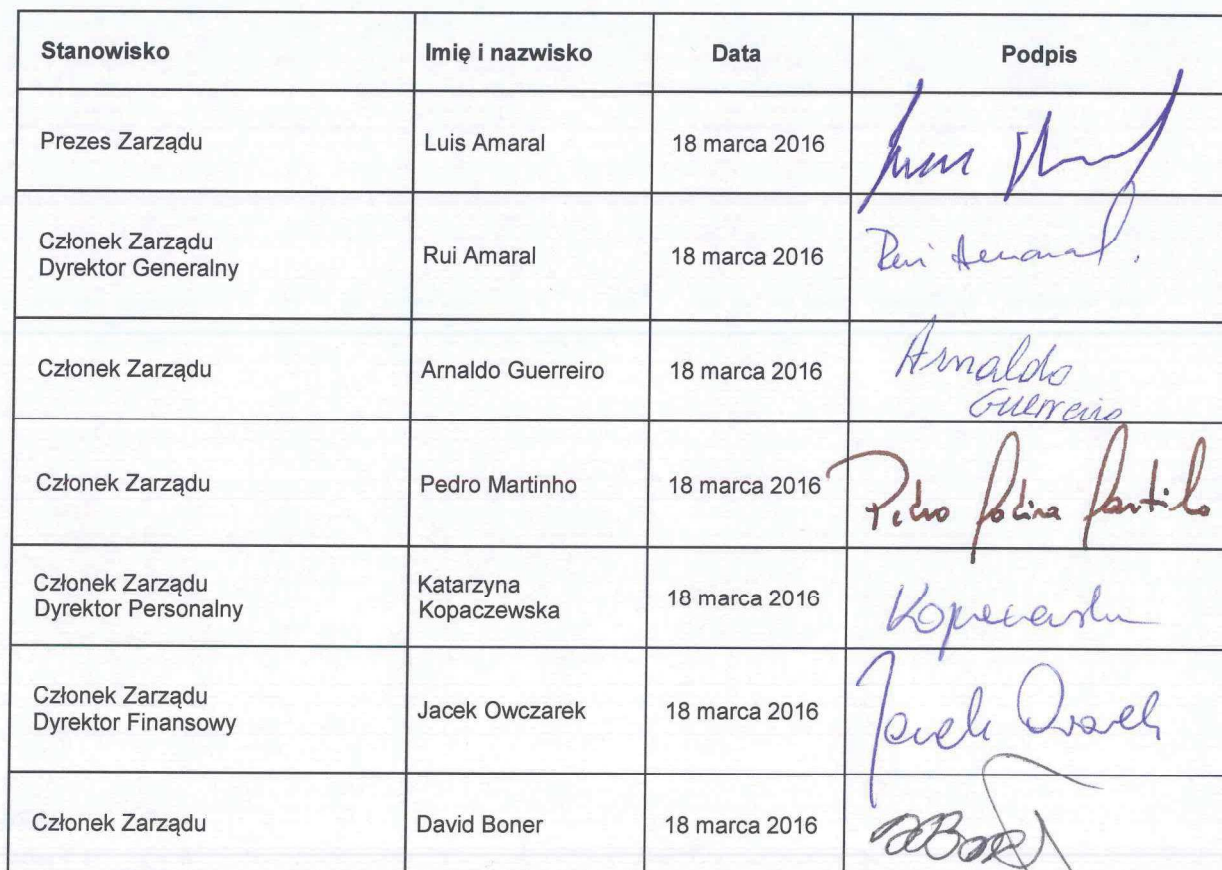 Stanowisko Imię i nazwisko Data Podpis
Prezes Zarządu Luis Amaral 18 marca 2016
Członek Zarządu
Dyrektor Generalny Rui Amaral 18 marca 2016 Rui Amaral.
Członek Zarządu Arnaldo Guerreiro 18 marca 2016 Arnaldo
Guerreiro
Członek Zarządu Pedro Martinho 18 marca 2016 Pedro
Członek Zarządu
Dyrektor Personalny Katarzyna
Kopaczewska 18 marca 2016
Członek Zarządu
Dyrektor Finansowy Jacek Owczarek 18 marca 2016 Jacek
Członek Zarządu David Boner 18 marca 2016